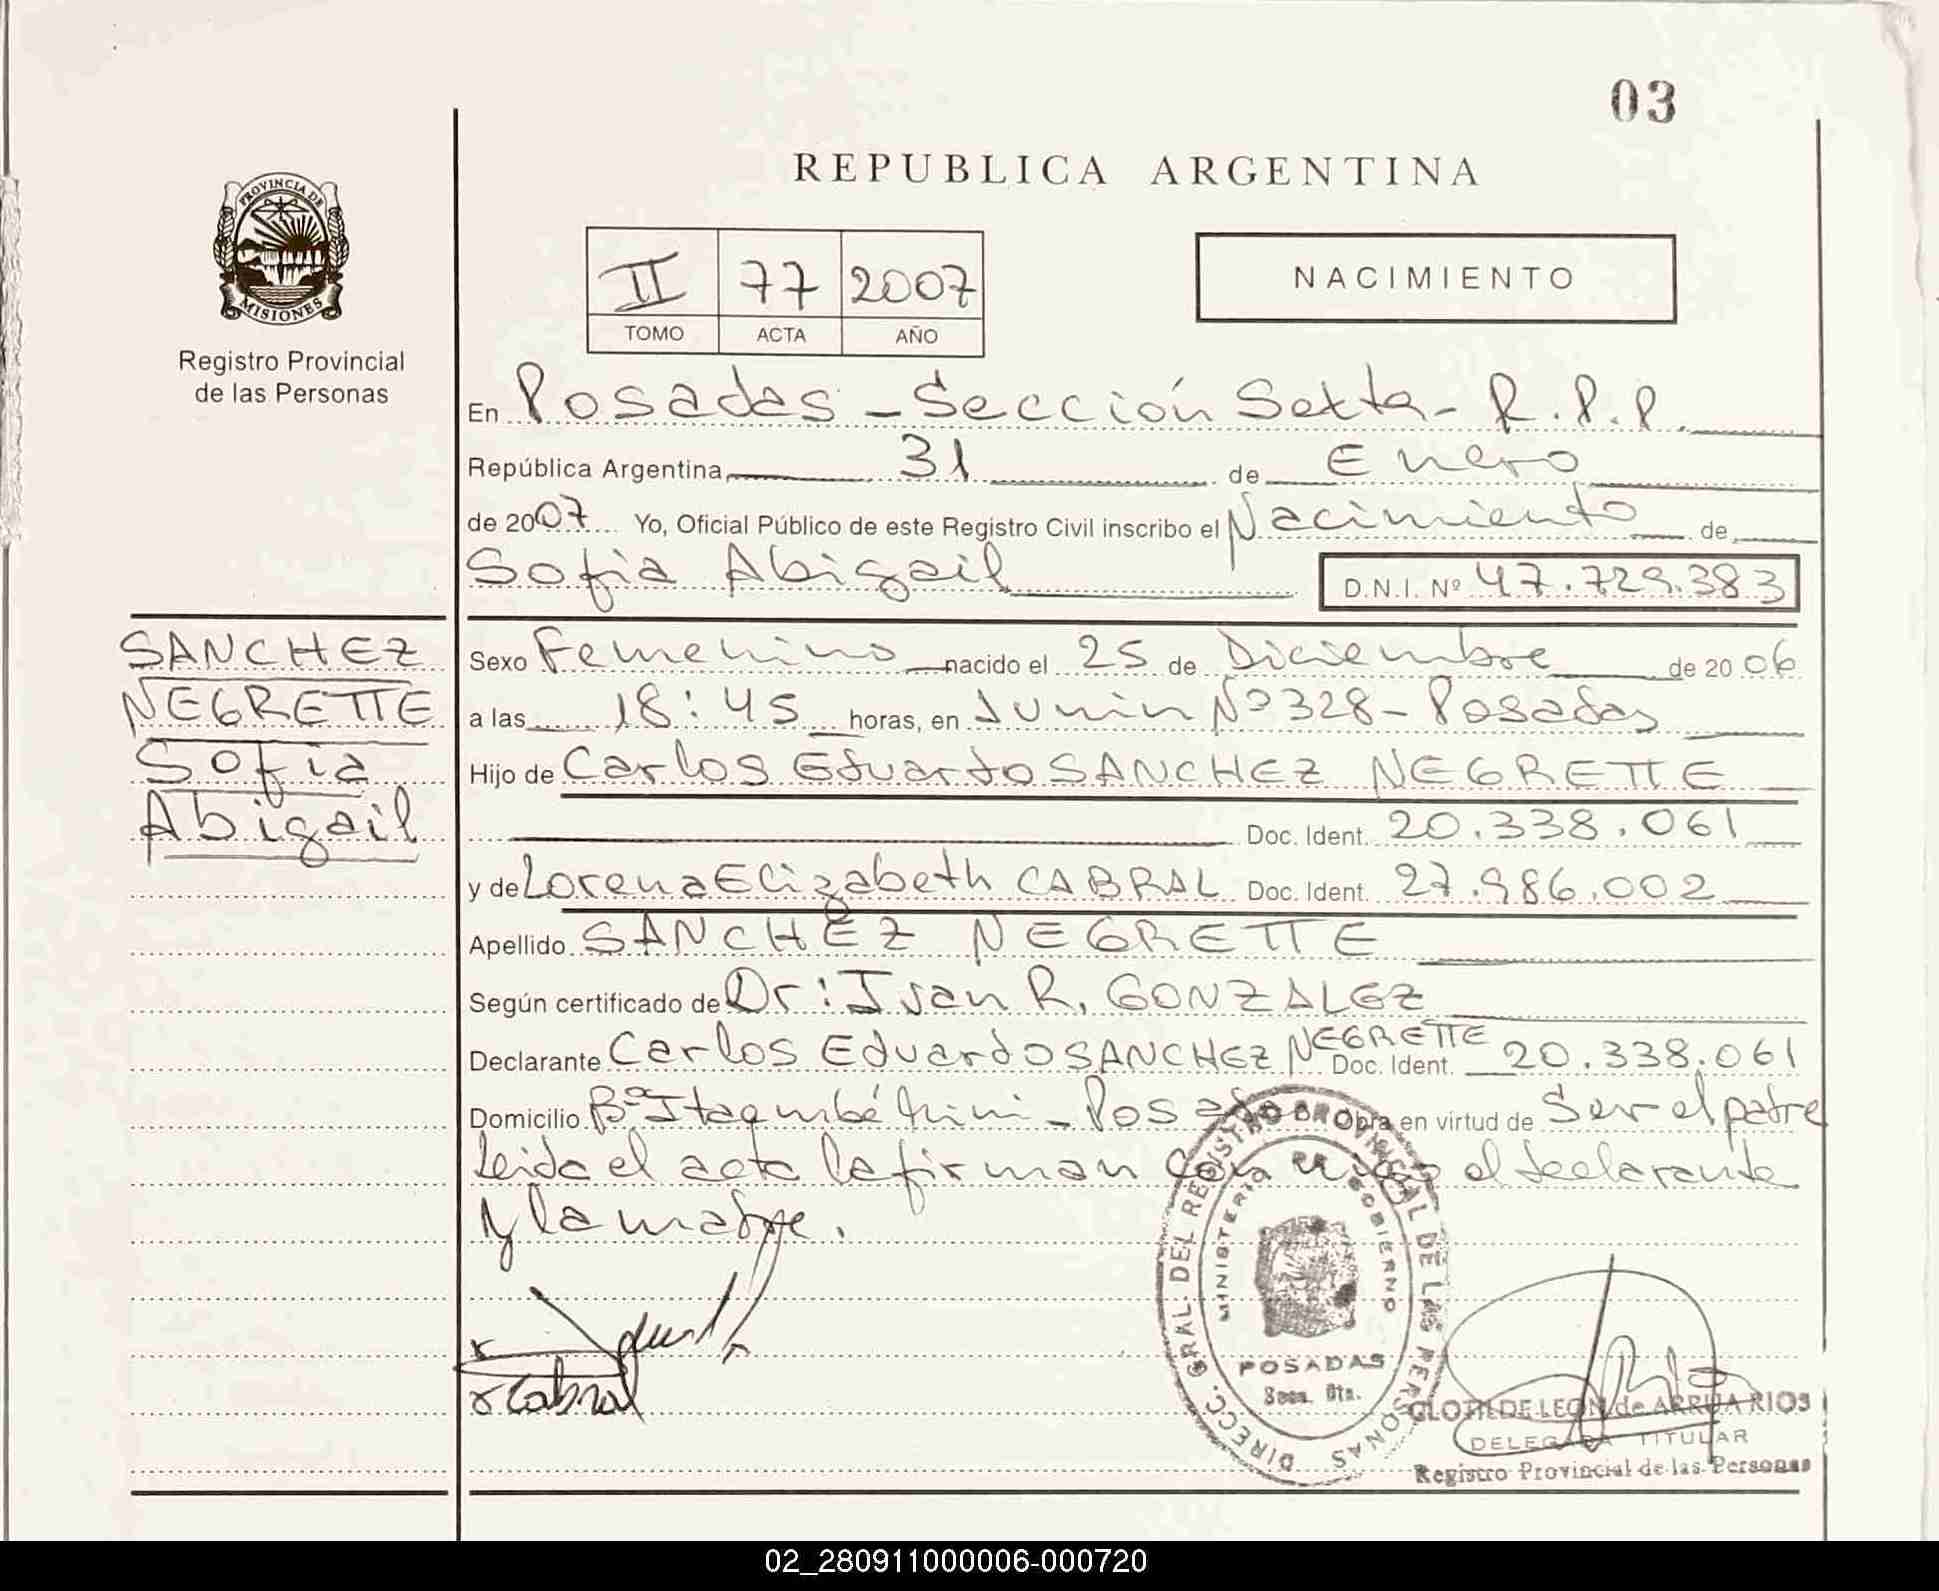 03
REPUBLICA ARGENTINA
PROVINCIA DE
MISIONES
Registro Provincial
de las Personas
II 77 2007
TOMO ACTA AÑO
NACIMIENTO
En Posadas - Sección Sexta - R.P.P.
República Argentina, 31 de Enero
de 2007 Yo, Oficial Público de este Registro Civil inscribo el Nacimiento de
Sofia Abigail D.N.I. Nº 47.729.383
SANCHEZ
NEGRETTE
Sofia
Abigail
Sexo Femenino nacido el 25 de Diciembre de 2006
a las 18:45 horas, en Junin Nº 328 - Posadas
Hijo de Carlos Eduardo SANCHEZ NEGRETTE
Doc. Ident. 20.338.061
y de Lorena Elizabeth CABRAL Doc. Ident. 27.986.002
Apellido SANCHEZ NEGRETTE
Según certificado de Dr: Ivan R. GONZALEZ
Declarante Carlos Eduardo SANCHEZ NEGRETTE Doc. Ident. 20.338.061
Domicilio Bº Itaembé Mini - Posadas Obra en virtud de Ser el padre
Leida el acta la firman conmigo el declarante
y la madre.
Cabral
DIRECC. GRAL. DEL REGISTRO PROVINCIAL DE LAS PERSONAS
MINISTERIO GOBIERNO
POSADAS
Secc. 6ta.
CLOTILDE LEON de ARRUA RIOS
DELEGADA TITULAR
Registro Provincial de las Personas
02_280911000006-000720